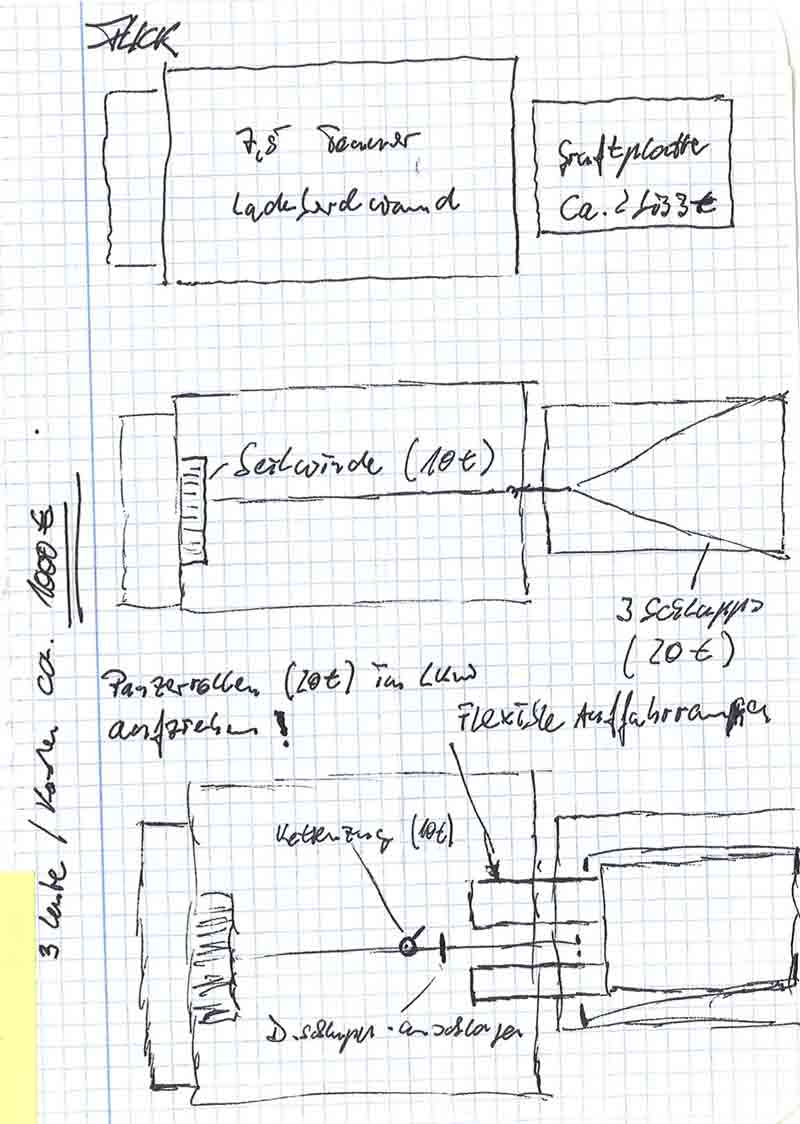 7,5 Tonner
Ladebordwand
Ca. 2 bis 3 t
Seilwinde (10t)
3 Schlupps
(20t)
Panzerrollen (20t) im LKW
aufziehen!
Flexible Auffahrrampen
Kettenzug (10t)
3 Leute / Kosten ca. 1000 €